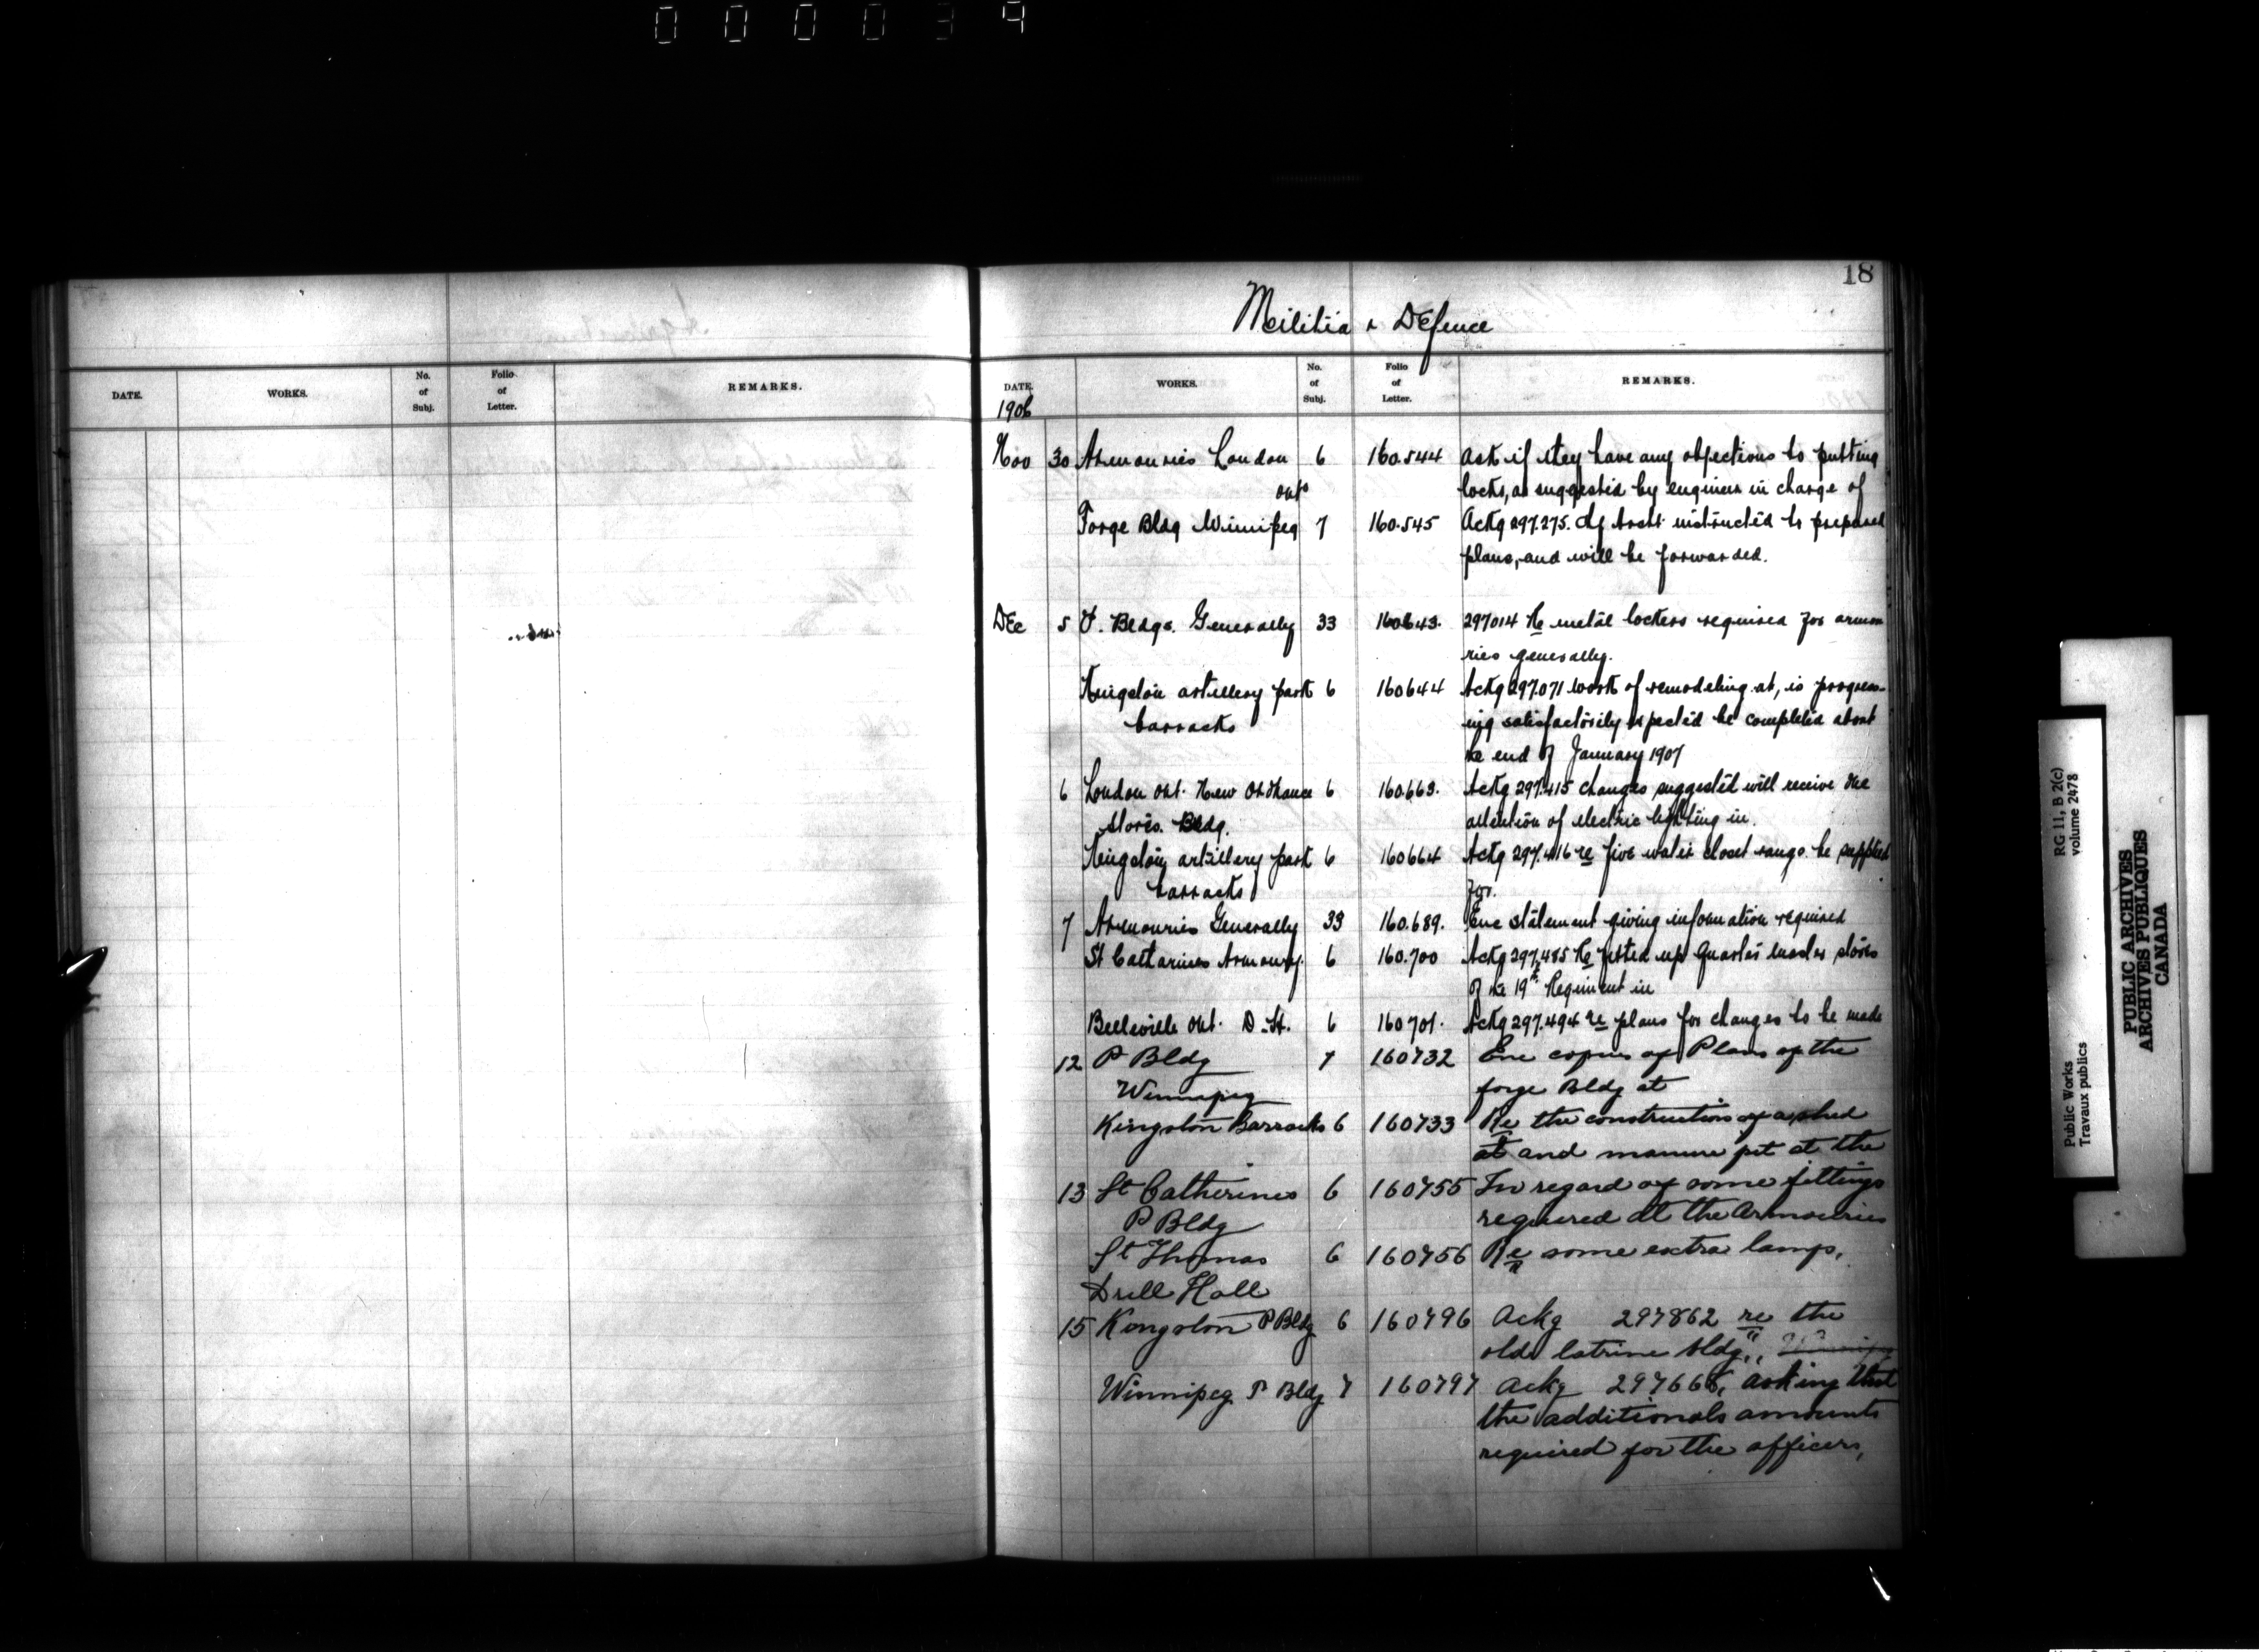 000039
18
Militia & Defence
DATE. WORKS. No. of Subj. Folio of Letter. REMARKS.
DATE. WORKS. No. of Subj. Folio of Letter. REMARKS.
1906
Nov 30 Armouries London 6 160.544 Ask if they have any objections to putting
Ont locks, as suggested by engineer in charge of
Forge Bldg Winnipeg 7 160.545 Ackg 297.275. Chf Archt instructed to prepared
plans, and will be forwarded.
Dec 5 P. Bldgs. Generally 33 160643. 297014 Re metal lockers required for armou
ries generally.
Kingston artillery park 6 160644 Ackg 297.071 work of remodeling at, is progress-
barracks ing satisfactorily expected be completed about
the end of January 1907
6 London Ont. New Ordnance 6 160.663. Ackg 297.415 changes suggested will receive the
stores. Bldg. attention of electric lighting in.
Kingston artillery park 6 160664 Ackg 297.416 re five water closet range be supplied
barracks for.
7 Armouries Generally 33 160.689. Enc statement giving information required
St Catarines Armoury. 6 160.700 Ackg 297.485 Re fitted up Quarter master stores
of the 19th Regiment in
Belleville Ont. D. H. 6 160701. Ackg 297.494 re plans for changes to be made
12 P Bldg 7 160732 Enc copies of Plans of the
Winnipeg forge Bldg at
Kingston Barracks 6 160733 Re the construction of a shed
at and manure pit at the
13 St Catherines 6 160755 In regard of some fittings
P Bldg required at the Armouries
St Thomas 6 160756 Re some extra lamps,
Drill Hall
15 Kingston P Bldg 6 160796 Ackg 297862 re the
old latrine bldg,, Winnipeg
Winnipeg P Bldg 7 160797 Ackg 297666, asking that
the additionals amounts
required for the officers,
RG 11, B 2(c)
volume 2478
Public Works
Travaux publics
PUBLIC ARCHIVES
ARCHIVES PUBLIQUES
CANADA